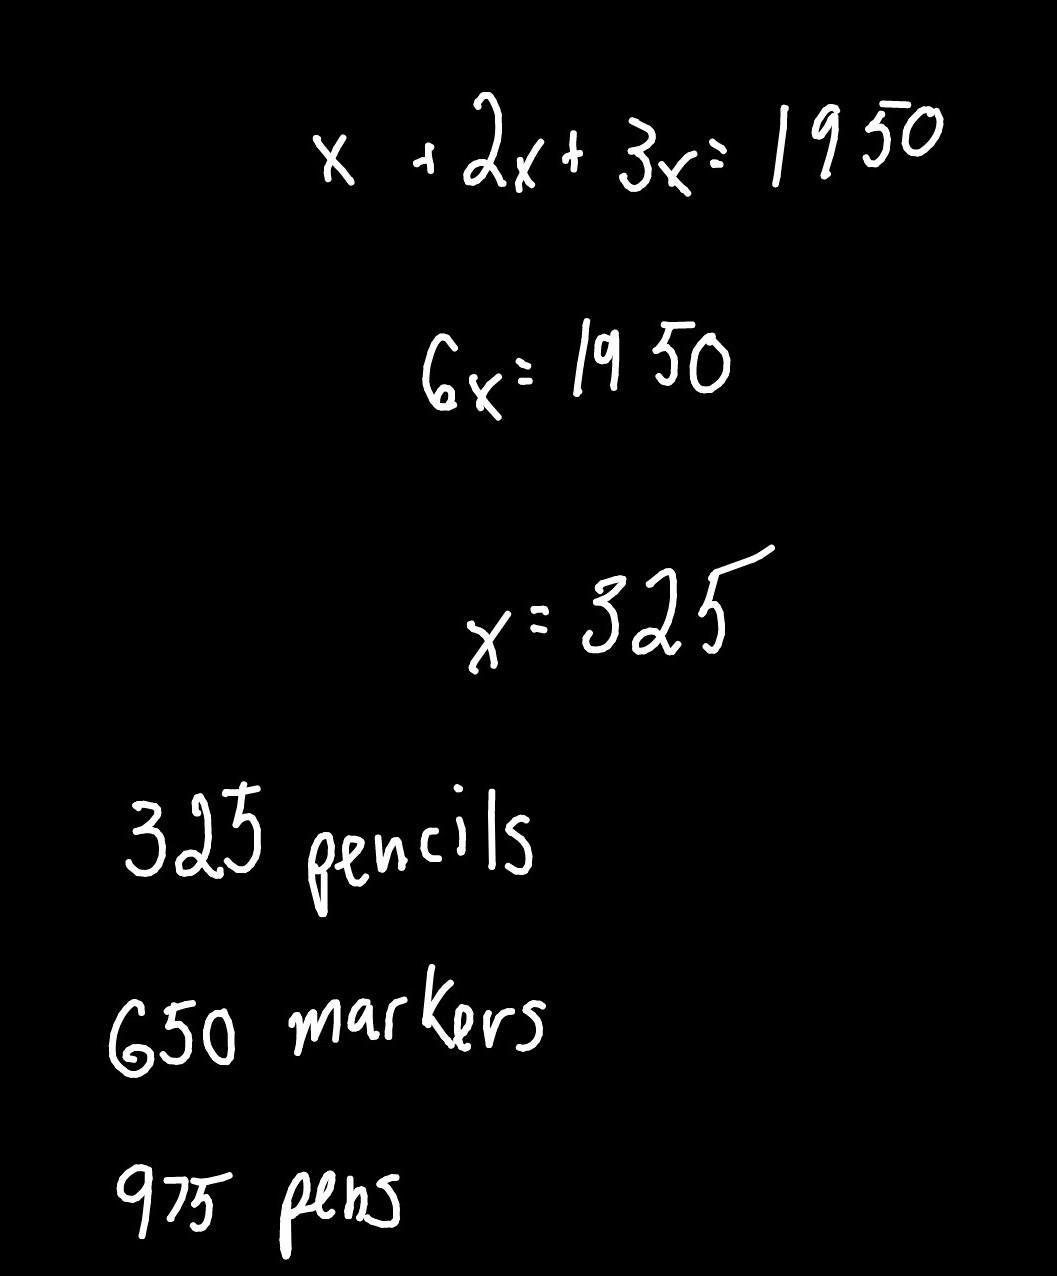 x + 2x + 3x = 1950
6x = 1950
x = 325
325 pencils
650 markers
975 pens